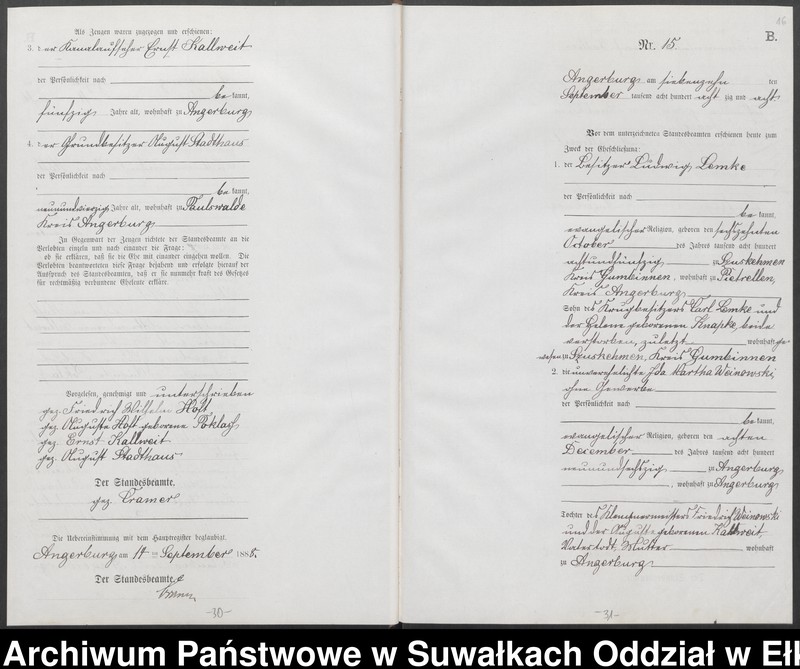 Als Zeugen waren zugezogen und erschienen:
3. der Kanalaufseher Ernst Kallweit
der Persönlichkeit nach
be kannt,
fünfzig Jahre alt, wohnhaft zu Angerburg
4. der Grundbesitzer August Stadthaus
der Persönlichkeit nach
be kannt,
neunundvierzig Jahre alt, wohnhaft zu Paulswalde
Kreis Angerburg
In Gegenwart der Zeugen richtete der Standesbeamte an die
Verlobten einzeln und nach einander die Frage:
ob sie erklären, daß sie die Ehe mit einander eingehen wollen. Die
Verlobten beantworteten diese Frage bejahend und erfolgte hierauf der
Ausspruch des Standesbeamten, daß er sie nunmehr kraft des Gesetzes
für rechtmäßig verbundene Eheleute erkläre.
Vorgelesen, genehmigt und unterschrieben
gez. Friedrich Wilhelm Hoft
gez. Auguste Hoft geborene Poklag
gez. Ernst Kallweit
gez. August Stadthaus
Der Standesbeamte.
gez. Cramer
Die Uebereinstimmung mit dem Hauptregister beglaubigt.
Angerburg am 14 ten September 1888.
Der Standesbeamte
-30-
16
B.
Nr. 15.
Angerburg am siebenzehn ten
September tausend acht hundert acht zig und acht
Vor dem unterzeichneten Standesbeamten erschienen heute zum
Zweck der Eheschließung:
1. der Besitzer Ludwig Lemke
der Persönlichkeit nach
be kannt,
evangelischer Religion, geboren den sechszehnten
October des Jahres tausend acht hundert
achtundfünfzig zu Szuskehmen
Kreis Gumbinnen, wohnhaft zu Pietrellen,
Kreis Angerburg
Sohn des Krugbesitzers Carl Lemke und
der Helene geborenen Knapke, beide
verstorben, zuletzt wohnhaft ge-
wesen zu Szuskehmen, Kreis Gumbinnen
2. die unverehelichte Ida Martha Weinowski,
ohne Gewerbe
der Persönlichkeit nach
be kannt,
evangelischer Religion, geboren den achten
December des Jahres tausend acht hundert
neunundsechzig zu Angerburg
, wohnhaft zu Angerburg
Tochter des Klempnermeisters Friedrich Weinowski
und der Auguste geborenen Kallweit,
Vater todt, Mutter wohnhaft
zu Angerburg
-31-
Archiwum Państwowe w Suwałkach Oddział w Ełk